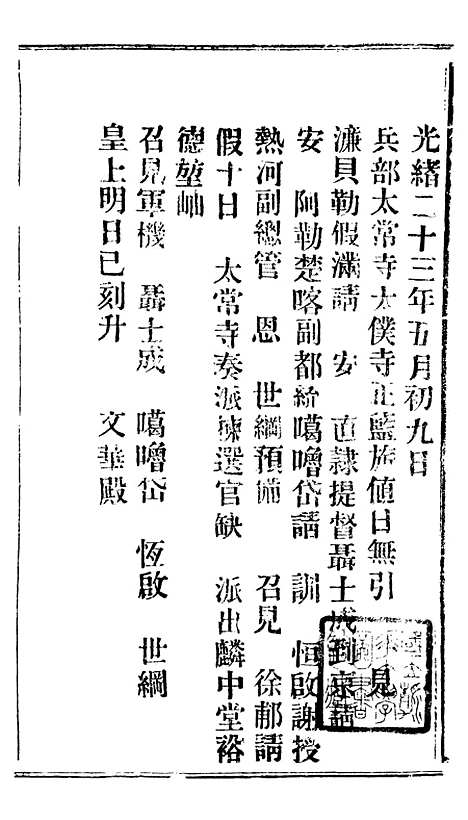 光緒二十三年五月初九日
兵部太常寺太僕寺正藍旗值日無引　見
濂貝勒假滿請　安　直隸提督聶士成到京請
安　阿勒楚喀副都統噶嚕岱請　訓　恒啟謝授
熱河副總管　恩　世綱預備　召見　徐郙請
假十日　太常寺奏派揀選官缺　派出麟中堂裕
德堃岫
召見軍機　聶士成　噶嚕岱　恆啟　世綱
皇上明日巳刻升　文華殿